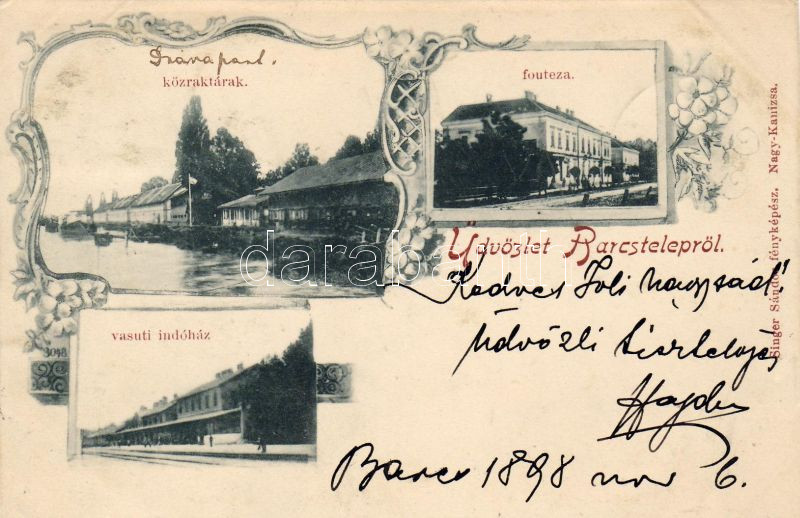 Drávapart.
közraktárak.
fouteza.
Üdvözlet Barcstelepröl.
"Kedves Joli nagysád"
Üdvözli tisztelője
Hajdu
vasuti indóház
3048
Barcs 1898 nov 6.
Singer Sándor fényképész. Nagy-Kanizsa.
darabanth